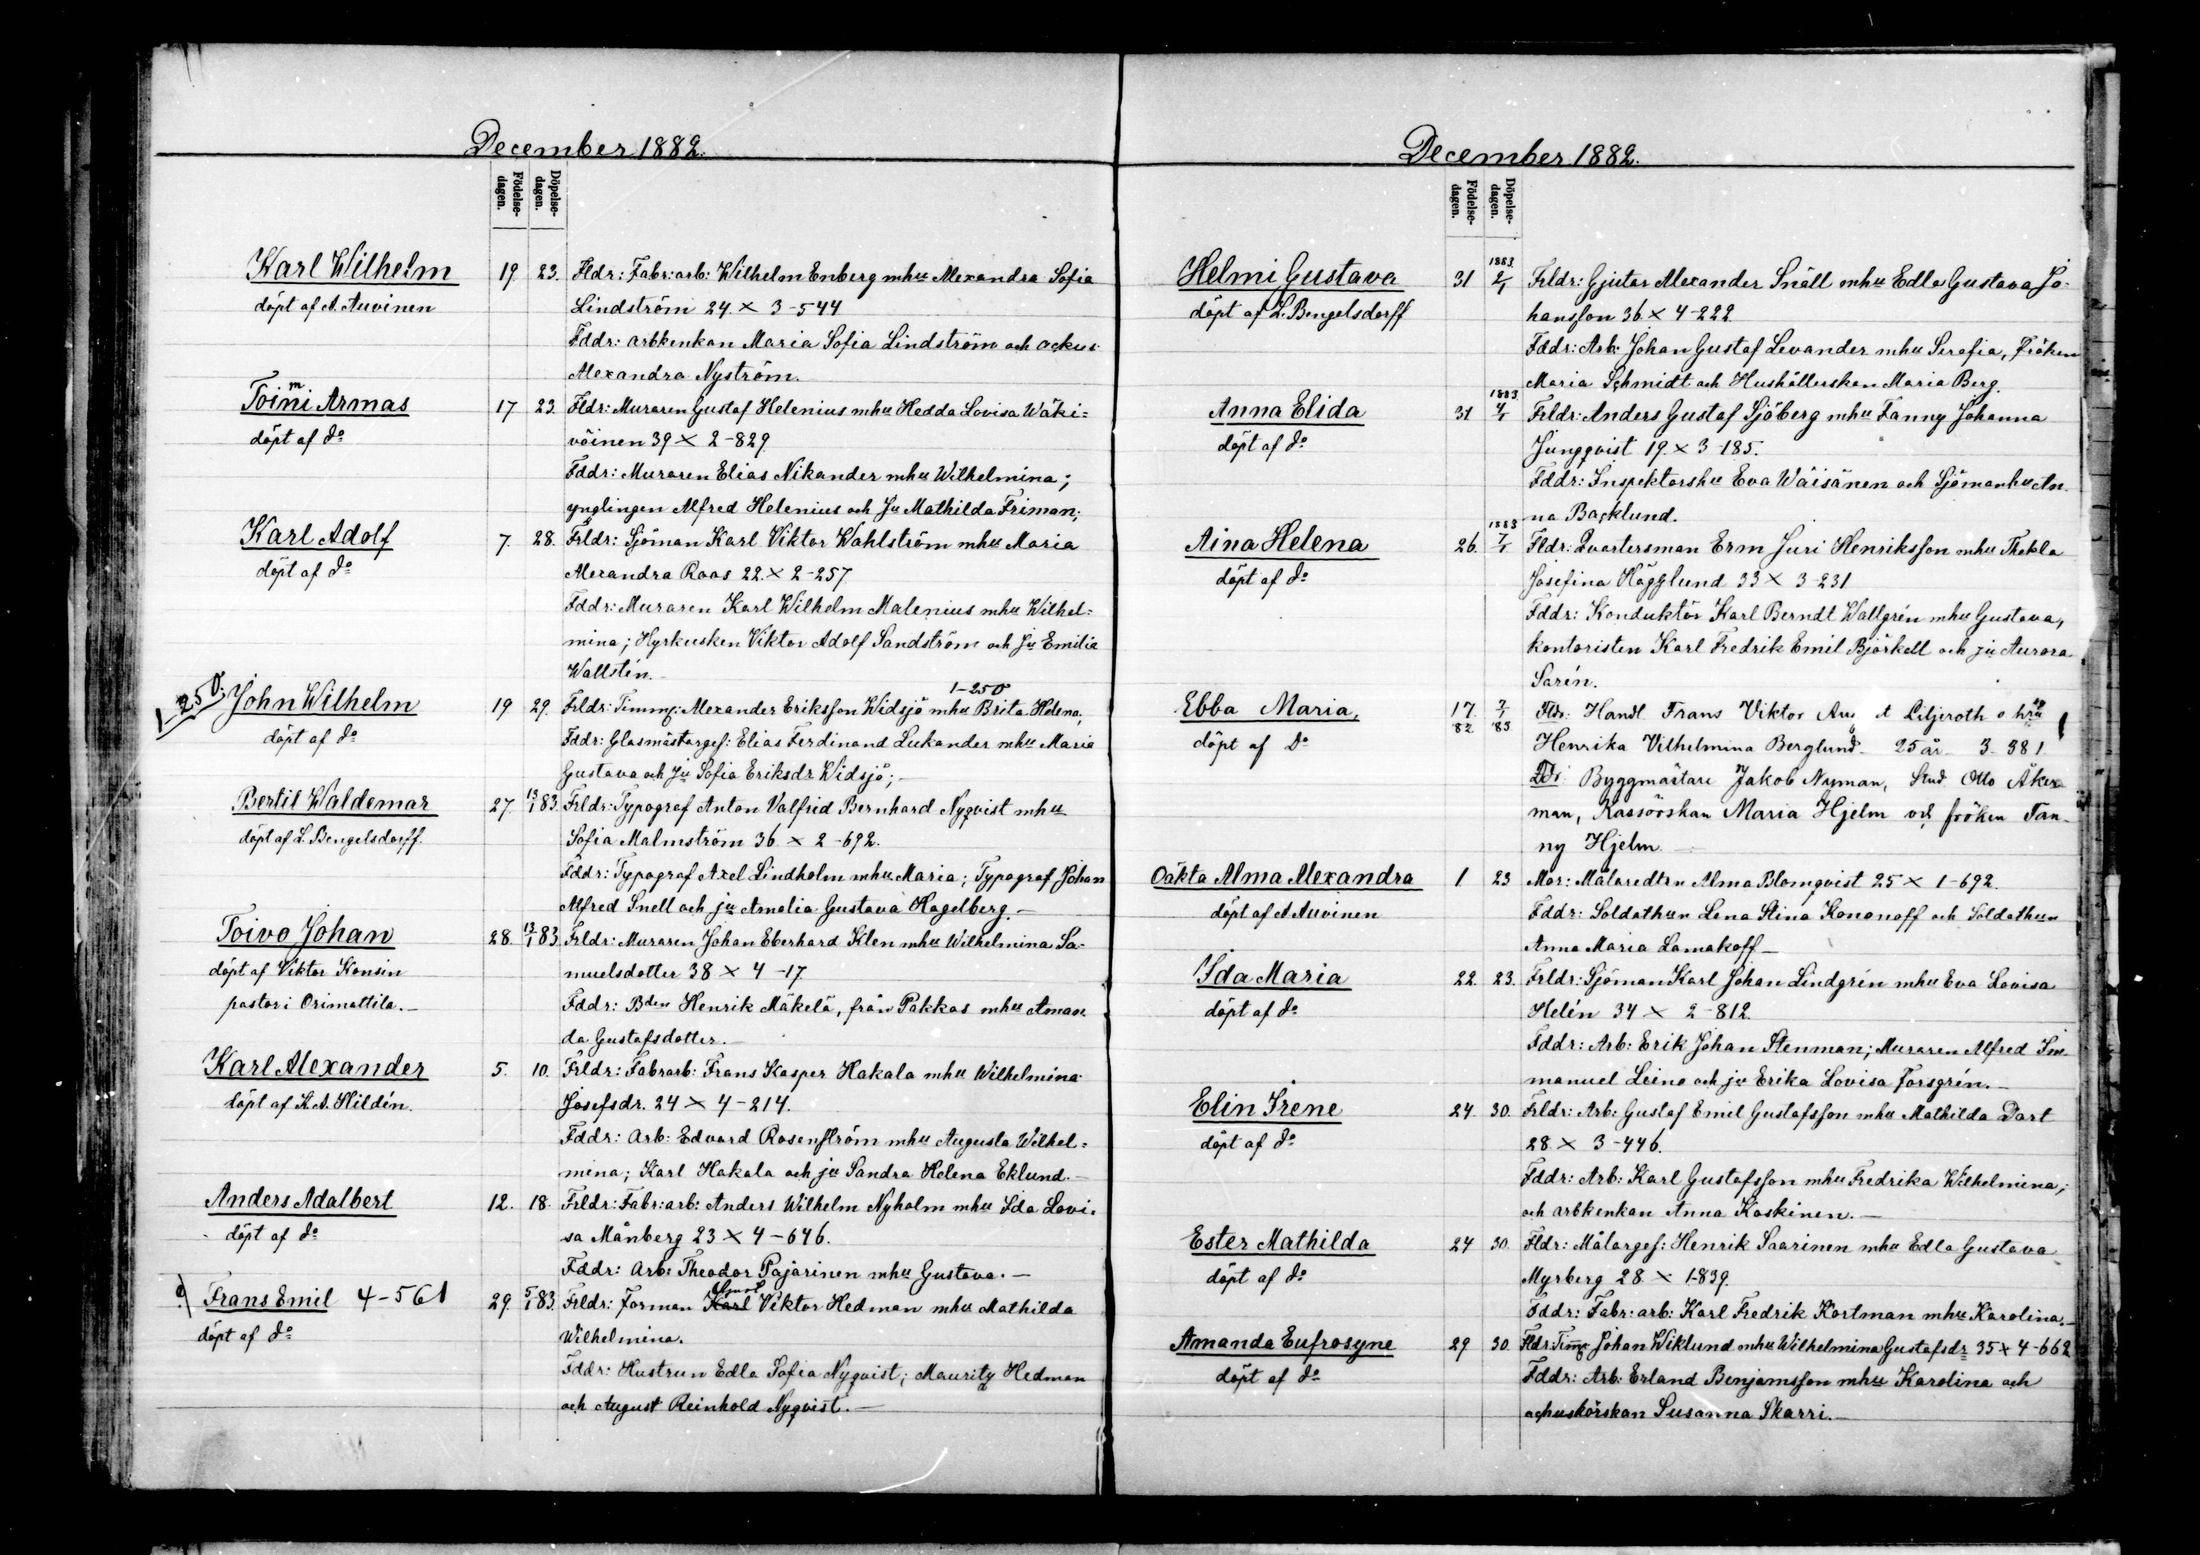 December 1882.
Födelse-dagen.
Döpelse-dagen.
Karl Wilhelm 19 23. Fldr: Fabr: arb: Wilhelm Enberg mhu Alexandra Sofia
döpt af A. Auvinen Lindström 24. × 3-544
Fddr: arbkenkan Maria Sofia Lindström och ackus:
Alexandra Nyström.
Toimi Armas 17 23. Fldr: Muraren Gustaf Helenius mhu Hedda Lovisa Wäki-
döpt af do väinen 39 × 2-829
Fddr: Muraren Elias Nikander mhu Wilhelmina;
ynglingen Alfred Helenius och Ju Mathilda Friman;
Karl Adolf 7. 28. Frldr: Sjöman Karl Viktor Wahlström mhu Maria
döpt af do Alexandra Roos 22. × 2-257
Fddr: Muraren Karl Wilhelm Malenius mhu Wilhel-
mina; Hyrkusken Viktor Adolf Sandström och Ju Emilia
Wallstén.
1-250
1-250. John Wilhelm 19 29. Frldr: Timmg: Alexander Eriksson Widsjö mhu Brita Helena,
döpt af do Fddr: Glasmästargef: Elias Ferdinand Lukander mhu Maria
Gustava och Ju Sofia Eriksdr Widsjö;
Bertil Waldemar 27. 13/1 83. Frldr: Typograf Anton Valfrid Bernhard Nyqvist mhu
döpt af L. Bengelsdorff. Sofia Malmström 36 × 2-692.
Fddr: Typograf Axel Lindholm mhu Maria; Typograf Johan
Alfred Snell och ju Amalia Gustava Hagelberg.
Toivo Johan 28. 13/1 83. Frldr: Muraren Johan Eberhard Klen mhu Wilhelmina Sa-
döpt af Viktor Konsin muelsdotter 38 × 4-17
pastor i Orimattila. Fddr: Bden Henrik Mäkelä, från Pakkas mhu Aman-
da Gustafsdotter.
Karl Alexander 5. 10. Frldr: Fabrarb: Frans Kasper Hakala mhu Wilhelmina
döpt af K. A. Hildén. Josefsdr. 24 × 4-214.
Fddr: Arb: Edvard Rosenström mhu Augusta Wilhel-
mina; Karl Hakala och ju Sandra Helena Eklund.
Anders Adalbert 12. 18. Frldr: Fabr: arb: Anders Wilhelm Nyholm mhu Ida Lovi-
döpt af do sa Månberg 23 × 4-646.
Fddr: Arb: Theodor Pajarinen mhu Gustava.
Frans Emil 4-561 29. 5/1 83. Frldr: Forman Karl Viktor Hedman mhu Mathilda
döpt af do Wilhelmina.
Fddr: Hustrun Edla Sofia Nyqvist; Mauritz Hedman
och August Reinhold Nyqvist.
December 1882.
Födelse-dagen.
Döpelse-dagen.
Helmi Gustava 31 1883 2/1 Frldr: Gjutar Alexander Snäll mhu Edla Gustava Jo-
döpt af L. Bengelsdorff hansson 36 × 4-222
Fddr: Arb: Johan Gustaf Levander mhu Serafia, Fröken
Maria Schmidt och Hushållerskan Maria Berg.
Anna Elida 31 1883 4/1 Frldr: Anders Gustaf Sjöberg mhu Fanny Johanna
döpt af do Jungqvist 19. × 3-185.
Fddr: Inspektorshu Eva Wäisänen och Sjömanhu An-
na Backlund.
Aina Helena 26. 1883 7/1 Fldr: Qvartersman Erm Juri Henriksson mhu Thekla
döpt af do Josefina Hägglund 33 × 3-231
Fddr: Konduktör Karl Berndt Wallgrén mhu Gustava,
kontoristen Karl Fredrik Emil Björkell och ju Aurora
Sarén.
Ebba Maria, 17. 82 7/1 83 Fldr: Handl Frans Viktor Liljeroth o hru
döpt af Do Henrika Vilhelmina Berglund 25 år 3-381
Fdr: Byggmästare Jakob Nyman, Stud Otto Åker-
man, Kassörskan Maria Hjelm och fröken Fan-
ny Hjelm
Oäkta Alma Alexandra 1 23 Mor: Målaredtrn Alma Blomqvist 25 × 1-692.
döpt af A Auvinen Fddr: Soldathun Lena Stina Kononoff och Soldathun
Anna Maria Lamakoff
Ida Maria 22. 23. Frldr: Sjöman Karl Johan Lindgrén mhu Eva Lovisa
döpt af do Helén 34 × 2-812.
Fddr: Arb: Erik Johan Stenman; Muraren Alfred Im-
manuel Leino och ju Erika Lovisa Forsgrén.
Elin Irene 24. 30. Frldr: Arb: Gustaf Emil Gustafsson mhu Mathilda Dart
döpt af do 28. × 3-446.
Fddr: Arb: Karl Gustafsson mhu Fredrika Wilhelmina;
och arbkenkan Anna Koskinen.
Ester Mathilda 24 30. Fldr: Målargef: Henrik Saarinen mhu Edla Gustava
döpt af do Myrberg 28 × 1-839.
Fddr: Fabr: arb: Karl Fredrik Kortman mhu Karolina.
Amanda Eufrosyne 29 30. Fldr: Timg Johan Wiklund mhu Wilhelmina Gustafsdr 35 × 4-662
döpt af do Fddr: Arb: Erland Benjamsson mhu Karolina och
achuskörskan Susanna Skarri.